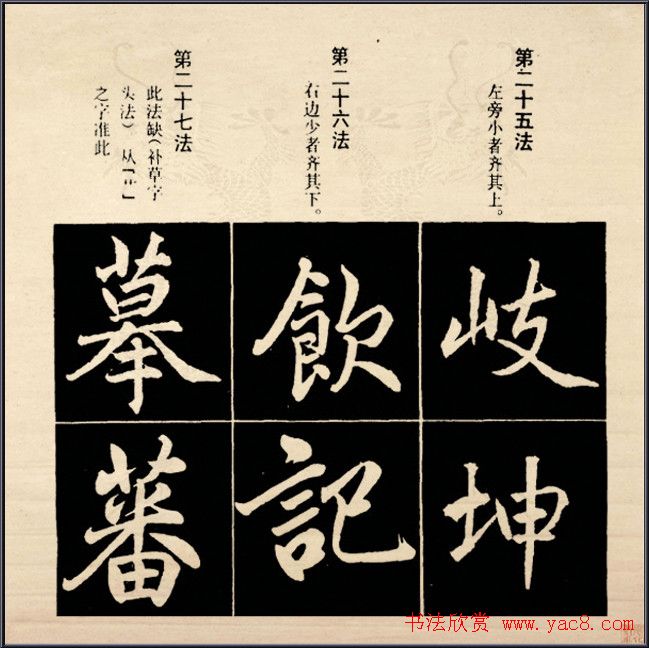 第二十五法
左旁小者齐其上。
第二十六法
右边少者齐其下。
第二十七法
此法缺（补草字
头法）从「艹」
之字准此
岐
坤
飲
記
摹
蕃
书法欣赏 www.yac8.com